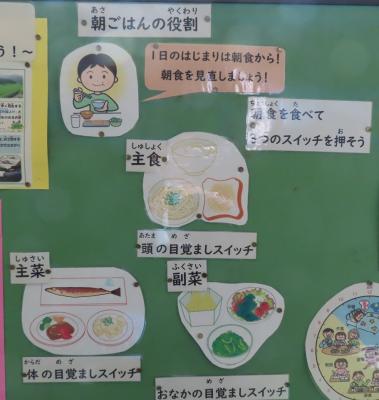 う！～
あさ やくわり
朝ごはんの役割
1日のはじまりは朝食から！
朝食を見直しましょう！
ちょうしょく た
朝食を食べて
お
3つのスイッチを押そう
しゅしょく
主食
あたま めざ
頭の目覚ましスイッチ
しゅさい
主菜
ふくさい
副菜
からだ めざ
体の目覚ましスイッチ
めざ
おなかの目覚ましスイッチ